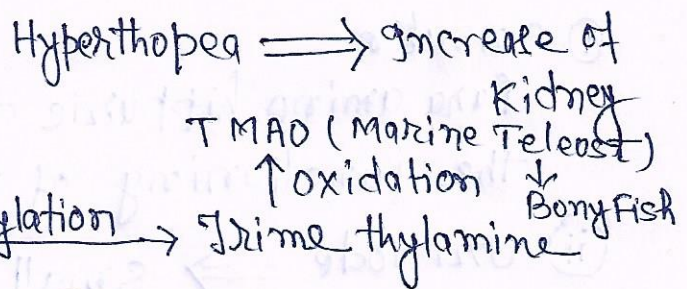 Hyperthopea ⟹ Increase of
Kidney
TMAO (Marine Teleost)
↑ oxidation ↓
Bony Fish
ylation → Trimethylamine